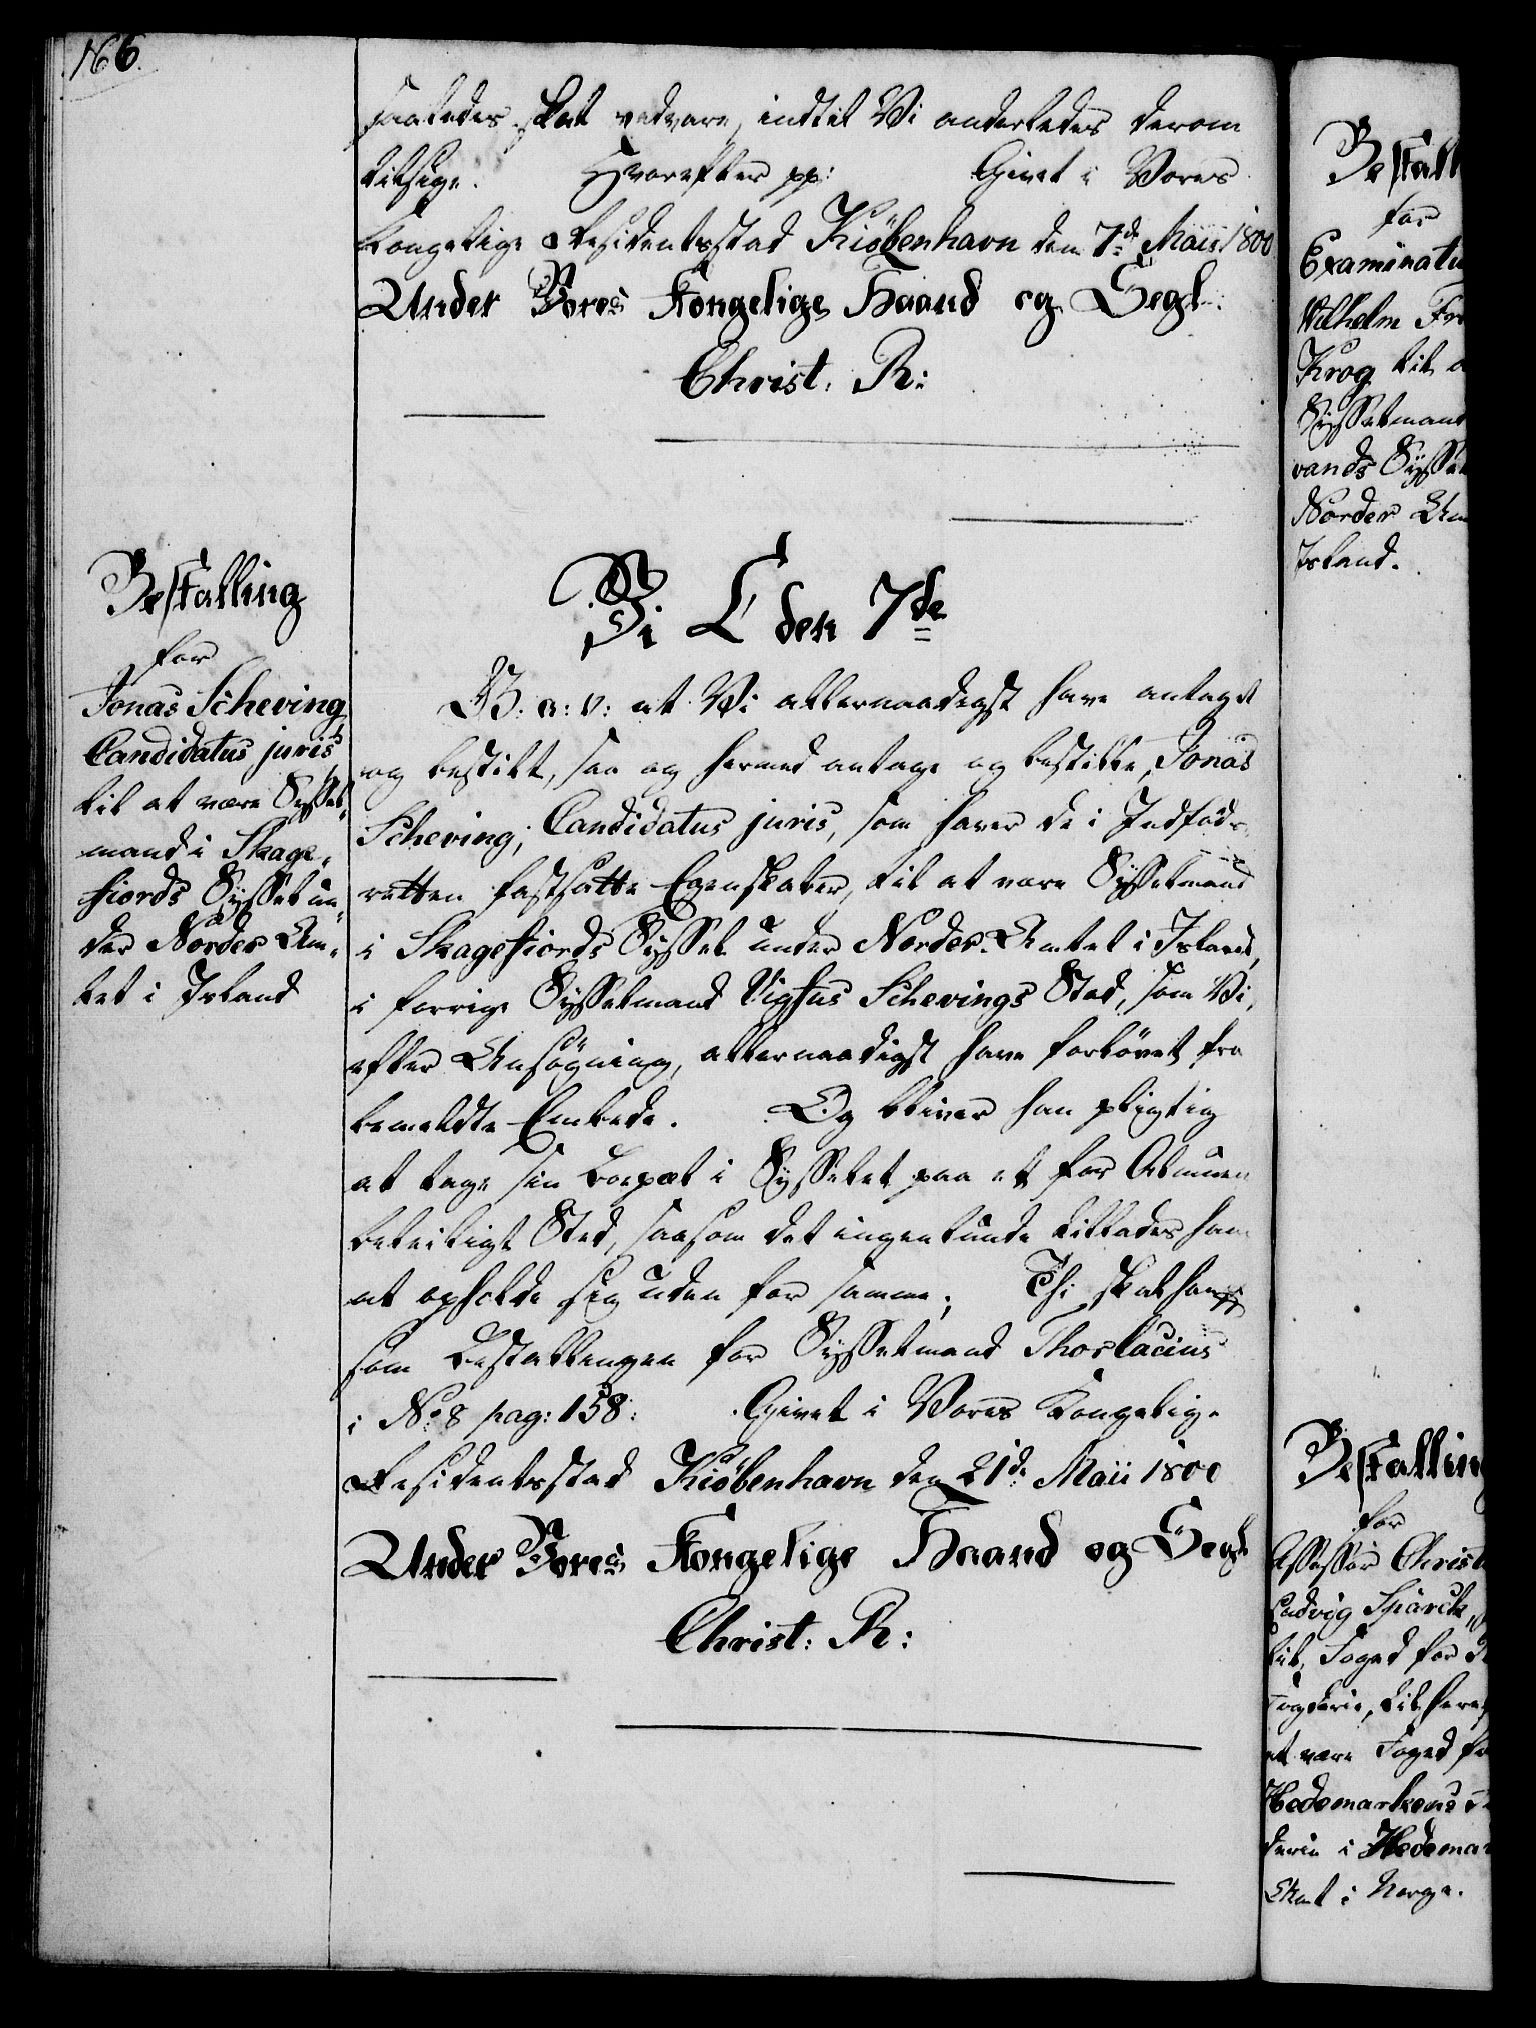 166.
saaledes skal vedvare, indtil Vi anderledes derom
tilsige. Hvorefter pp: Givet i Vores
Kongelige Residentsstad Kiöbenhavn den 7de Maii 1800
Under Vores Kongelige Haand og Segl.
Christ. R:
Bestalling
for
Jonas Scheving
Candidatus juris
til at være Syssel-
mand i Skage-
fiords Syssel un-
der Norder Am-
tet i Island
Vi C den 7de
G: a: v: at Vi allernaadigst have antaget
og bestilt, saa og hermed antage og bestille, Jonas
Scheving, Candidatus juris, som haver de i Indföds-
retten fastsatte Egenskaber, til at være Sysselmand
i Skagefiords Syssel under Norder-Amtet i Island,
i forrige Sysselmand Vigfus Schevings Sted, som Vi,
efter Ansögning, allernaadigst have forlövet fra
bemeldte Embede. Og bliver han pligtig
at tage sin Boepæl i Sysselet paa et for Almuen
beleiligt Sted, saasom det ingenlunde tillades ham
at opholde sig uden for samme; Thi skal han
som Bestallingen for Sysselmand Thorlacius
i No 8 pag: 158: Givet i Vores Kongelige
Residentsstad Kiöbenhavn den 21de Maii 1800
Under Vores Kongelige Haand og Segl
Christ: R:
Bestall
for
Examinatu
Wilhelm Fr
Krog til a
Sysselmand
vands Syssel
Norder Am
Island.
Bestalling
for
Assessor Christ
Ludvig Spärck,
til Foged for
Fogderie, til heref
at være Foged for
Hedemarkens
derie i Hedemar
Amt i Norge.